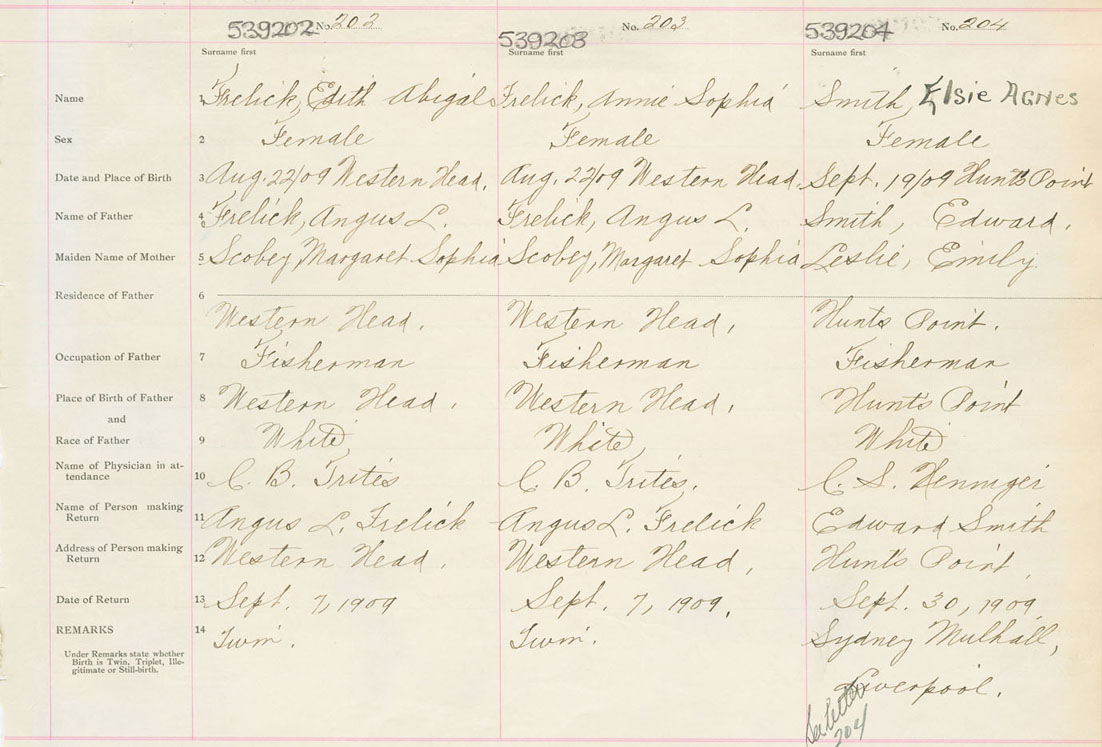 539202 No. 202 539203 No. 203 539204 No. 204
Surname first Surname first Surname first
Name 1 Frelick, Edith Abigal Frelick, Annie Sophia Smith, Elsie Agnes
Sex 2 Female Female Female
Date and Place of Birth 3 Aug. 22/09 Western Head. Aug. 22/09 Western Head. Sept. 19/09 Hunts Point
Name of Father 4 Frelick, Angus L. Frelick, Angus L. Smith, Edward.
Maiden Name of Mother 5 Scobey, Margaret Sophia Scobey, Margaret Sophia Leslie, Emily.
Residence of Father 6
Western Head. Western Head, Hunts Point.
Occupation of Father 7 Fisherman Fisherman Fisherman
Place of Birth of Father 8 Western Head. Western Head, Hunt's Point
and
Race of Father 9 White White White
Name of Physician in at-
tendance 10 C. B. Trites C. B. Trites. C. S. Henniger
Name of Person making
Return 11 Angus L. Frelick Angus L. Frelick Edward Smith
Address of Person making
Return 12 Western Head. Western Head, Hunts Point
Date of Return 13 Sept. 7, 1909 Sept. 7, 1909. Sept. 30, 1909
REMARKS 14 Twin. Twin. Sydney Mulhall,
Under Remarks state whether
Birth is Twin, Triplet, Ille-
gitimate or Still-birth.
Liverpool.
See letter
204